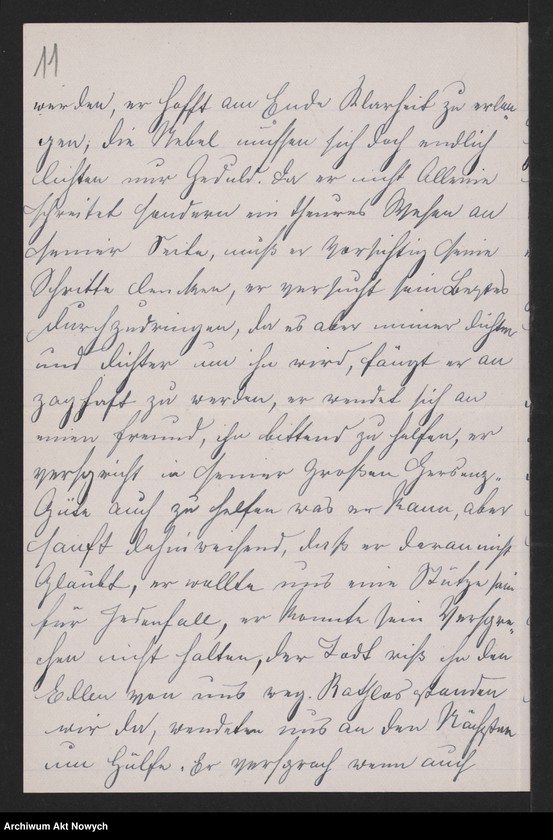 11
werden, er hofft am Ende Klarheit zu erlan„
gen, die Nebel müssen sich doch endlich
lichten nur Geduld. Da er nicht Alleine
schreitet sondern ein theures Wesen an
seiner Seite, muß er vorsichtig seine
Schritte lenken, er versucht sein Bestes
durchzudringen, da es aber immer dichter
und dichter um ihn wird, fängt er an
zaghaft zu werden, er wendet sich an
einen Freund, ihn bittend zu helfen, er
verspricht in seiner Großen Herzens„
Güte auch zu helfen was er Kann, aber
sanft dahin weisend, daß er daran nicht
Glaubt, er wollte uns eine Stütze sein
für Jedenfall, er konnte sein Verspre„
chen nicht halten, der Todt riß ihn den
Edlen von uns weg. Rathlos standen
wir da, wendeten uns an den Nächsten
um Hülfe. Er versprach wenn auch
Archiwum Akt Nowych